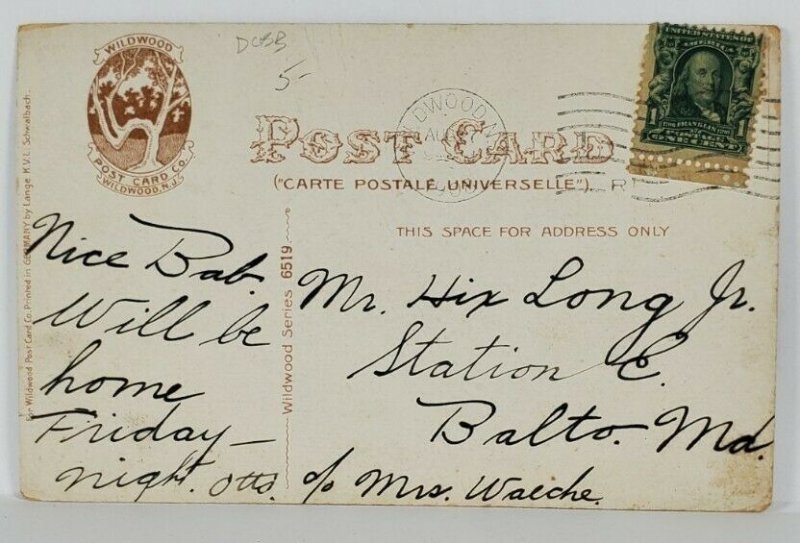 WILDWOOD
POST CARD CO.
WILDWOOD, N.J.
DCBB
5-
POST CARD
("CARTE POSTALE UNIVERSELLE").
UNITED STATES OF
AMERICA
1 1
ONE CENT
THIS SPACE FOR ADDRESS ONLY
For Wildwood Post Card Co. Printed in GERMANY by Lange
Wildwood Series 6519
Nice Bab.
Will be
home
Friday—
night. Otto.
Mr. Hix Long Jr.
Station E.
Balto. Md.
c/o Mrs. Waeche.